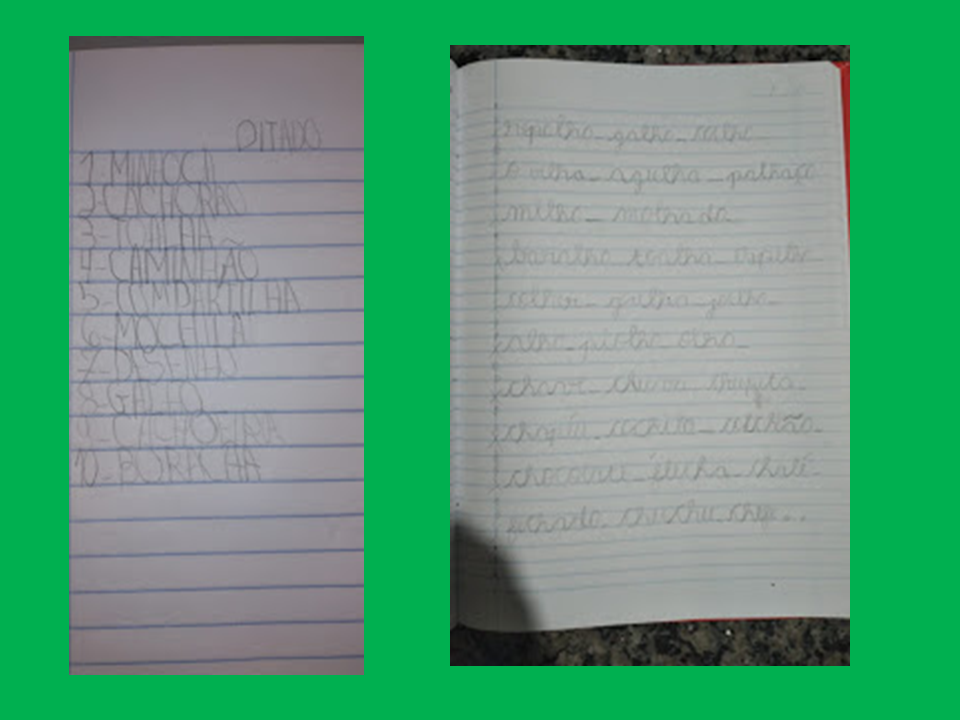 DITADO
1-MINIOCA
2-CACHORRO
3-TOALHA
4-CAMINHÃO
5-COMPARTILHA
6-MOCHILA
7-DESENHO
8-GALHO
9-CACHOEIRA
10-BORACHA
repolho - galho - calho
agulha - palhaço
milho - molhado
baralho toalha espelho
colher - julho
alho - piolho olho
chave - chuva chupeta
chapéu - cochilo - colchão
chocolate - chalé
fechado, chuchu,